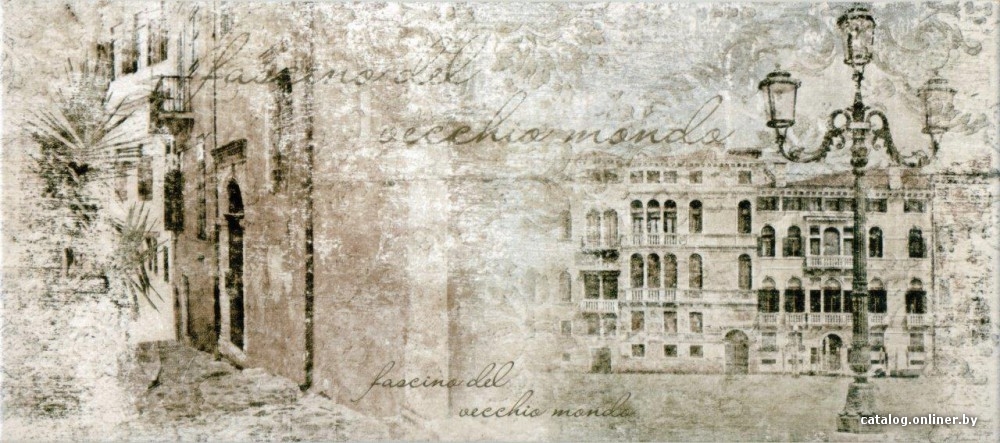 fascino del
vecchio mondo
fascino del
vecchio mondo
catalog.onliner.by